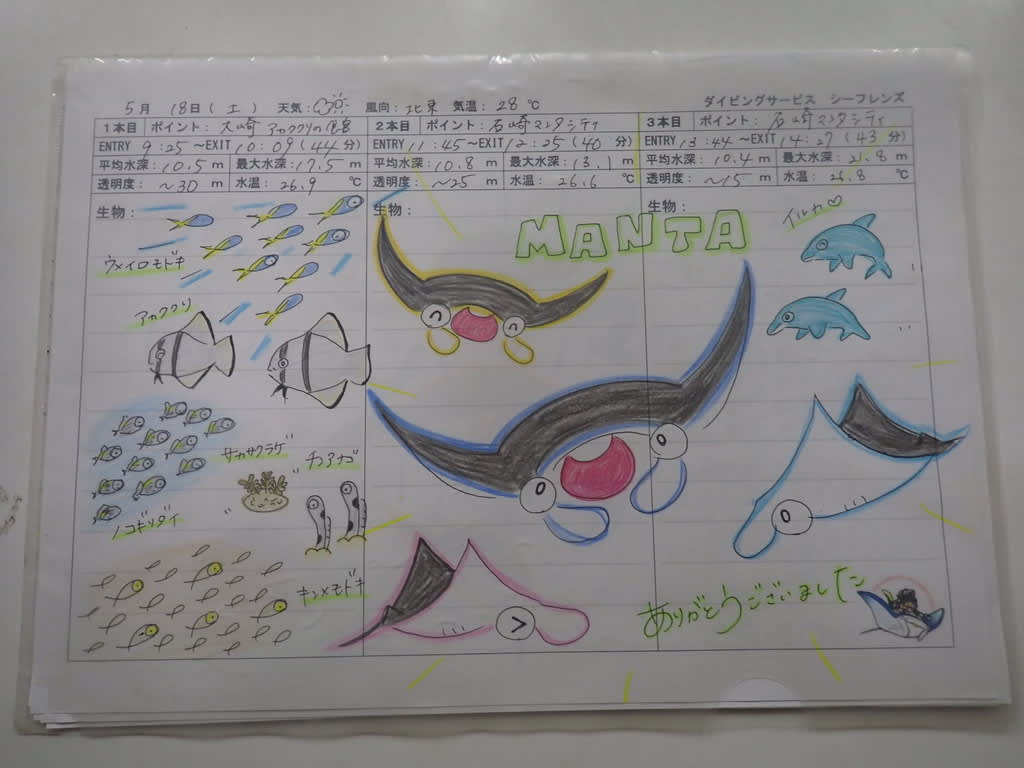 5月 18日(土) 天気: 風向: 北東 気温: 28℃
ダイビングサービス シーフレンズ
1本目 ポイント: 大崎 アカククリの宿
ENTRY 9:25～EXIT 10:09(44分)
平均水深: 10.5m 最大水深: 17.5m
透明度: ～30m 水温: 26.9℃
生物:
ウメイロモドキ
アカククリ
サカサクラゲ
チンアナゴ
ノコギリダイ
キンメモドキ
2本目 ポイント: 石崎マンタシティ
ENTRY 11:45～EXIT 12:25(40分)
平均水深: 10.8m 最大水深: 13.1m
透明度: ～25m 水温: 26.6℃
生物:
MANTA
3本目 ポイント: 石崎マンタシティ
ENTRY 13:44～EXIT 14:27(43分)
平均水深: 10.4m 最大水深: 21.8m
透明度: ～15m 水温: 26.8℃
生物:
イルカ♡
ありがとうございました